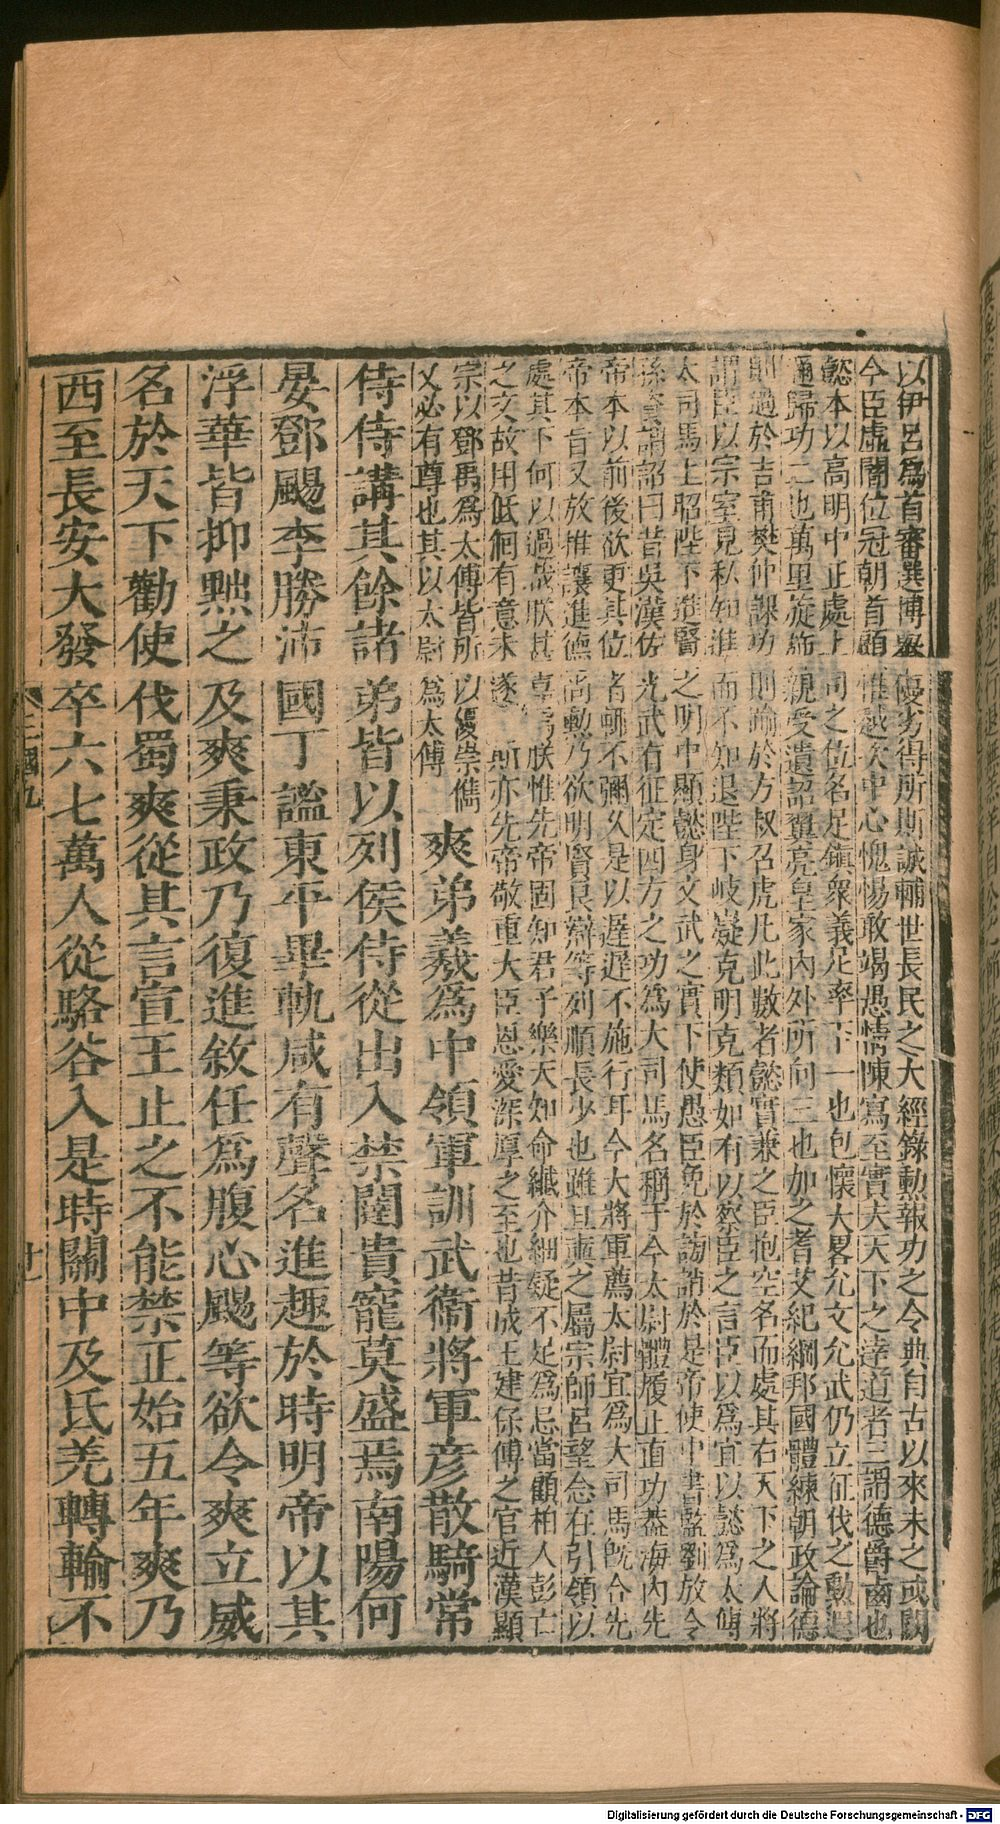 以伊呂為首審選博舉優劣得所斯誠輔世長民之大經錄勳報功之令典自古以來未之或闕
今臣虛闇位冠朝首顧惟越次中心愧惕敢竭愚情陳寫至實夫天下之達道者三謂德爵齒也
懿本以高明中正處上司之位名足鎮衆義足率下一也包懷大畧允文允武仍立征伐之勲遐
邇歸功二也萬里旋斾親受遺詔翼亮皇家內外所向三也加之耆艾紀綱邦國體練朝政論德
則過於吉甫樊仲課功則踰於方叔召虎凡此數者懿實兼之臣抱空名而處其右天下之人將
謂臣以宗室見私知進而不知退陛下岐嶷克明克類如有以察臣之言臣以為宜以懿為太傅
大司馬上昭陛下進賢之明中顯懿身文武之實下使愚臣免於謗誚於是帝使中書監劉放令
孫資為詔曰昔吳漢佐光武有征定四方之功為大司馬名稱于今太尉體履正直功蓋海內先
帝本以前後欲更其位者輒不彌久是以遲遲不施行耳今大將軍薦太尉宜為大司馬旣合先
帝本旨又放推讓進德尚勲乃欲明賢良辯等列順長少也雖旦奭之屬宗師呂望念在引領以
處其下何以過哉朕甚嘉焉朕惟先帝固知君子樂天知命纖介細疑不足為忌當顧柏人彭亡
之文故用低佪有意未遂斯亦先帝敬重大臣恩愛深厚之至也昔成王建保傅之官近漢顯
宗以鄧禹為太傅皆所以優崇雋
乂必有尊也其以太尉為太傅
爽弟羲為中領軍訓武衞將軍彦散騎常
侍侍講其餘諸弟皆以列侯侍從出入禁闥貴寵莫盛焉南陽何
晏鄧颺李勝沛國丁謐東平畢軌咸有聲名進趣於時明帝以其
浮華皆抑黜之及爽秉政乃復進敘任為腹心颺等欲令爽立威
名於天下勸使伐蜀爽從其言宣王止之不能禁正始五年爽乃
西至長安大發卒六七萬人從駱谷入是時關中及氐羌轉輸不
三國九
廿一
Digitalisierung gefördert durch die Deutsche Forschungsgemeinschaft - DFG